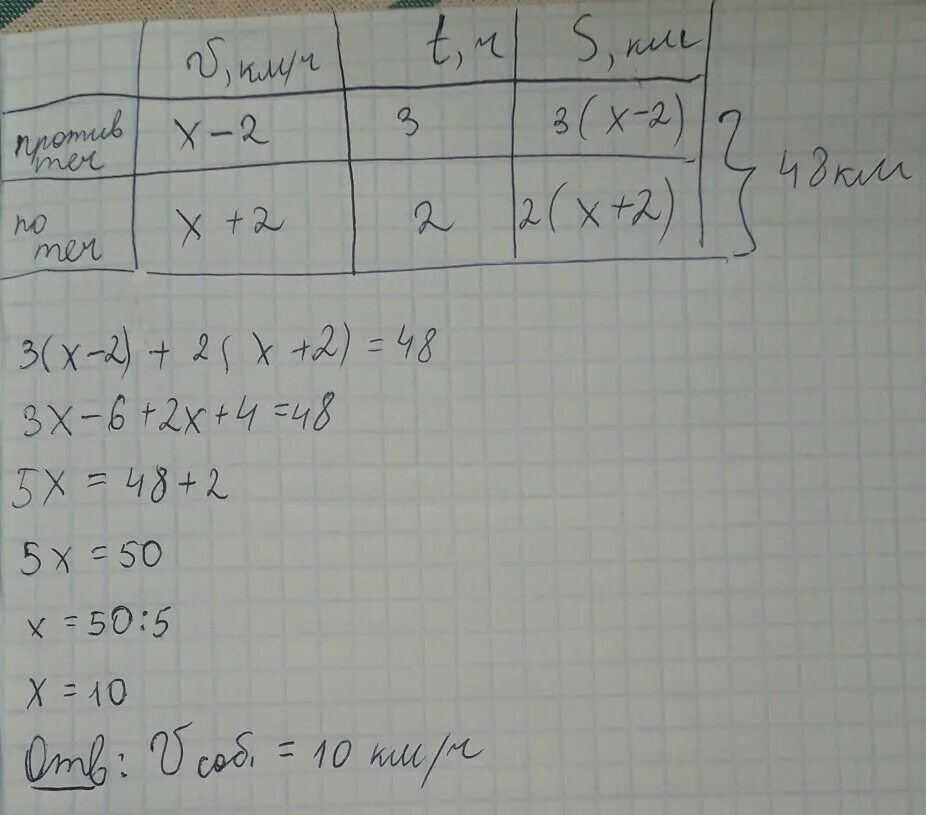 v, км/ч t, ч S, км
против теч x-2 3 3(x-2)
по теч x+2 2 2(x+2)
} 48 км
3(x-2) + 2(x+2) = 48
3x-6+2x+4=48
5x = 48+2
5x = 50
x = 50:5
x = 10
Отв: v соб. = 10 км/ч